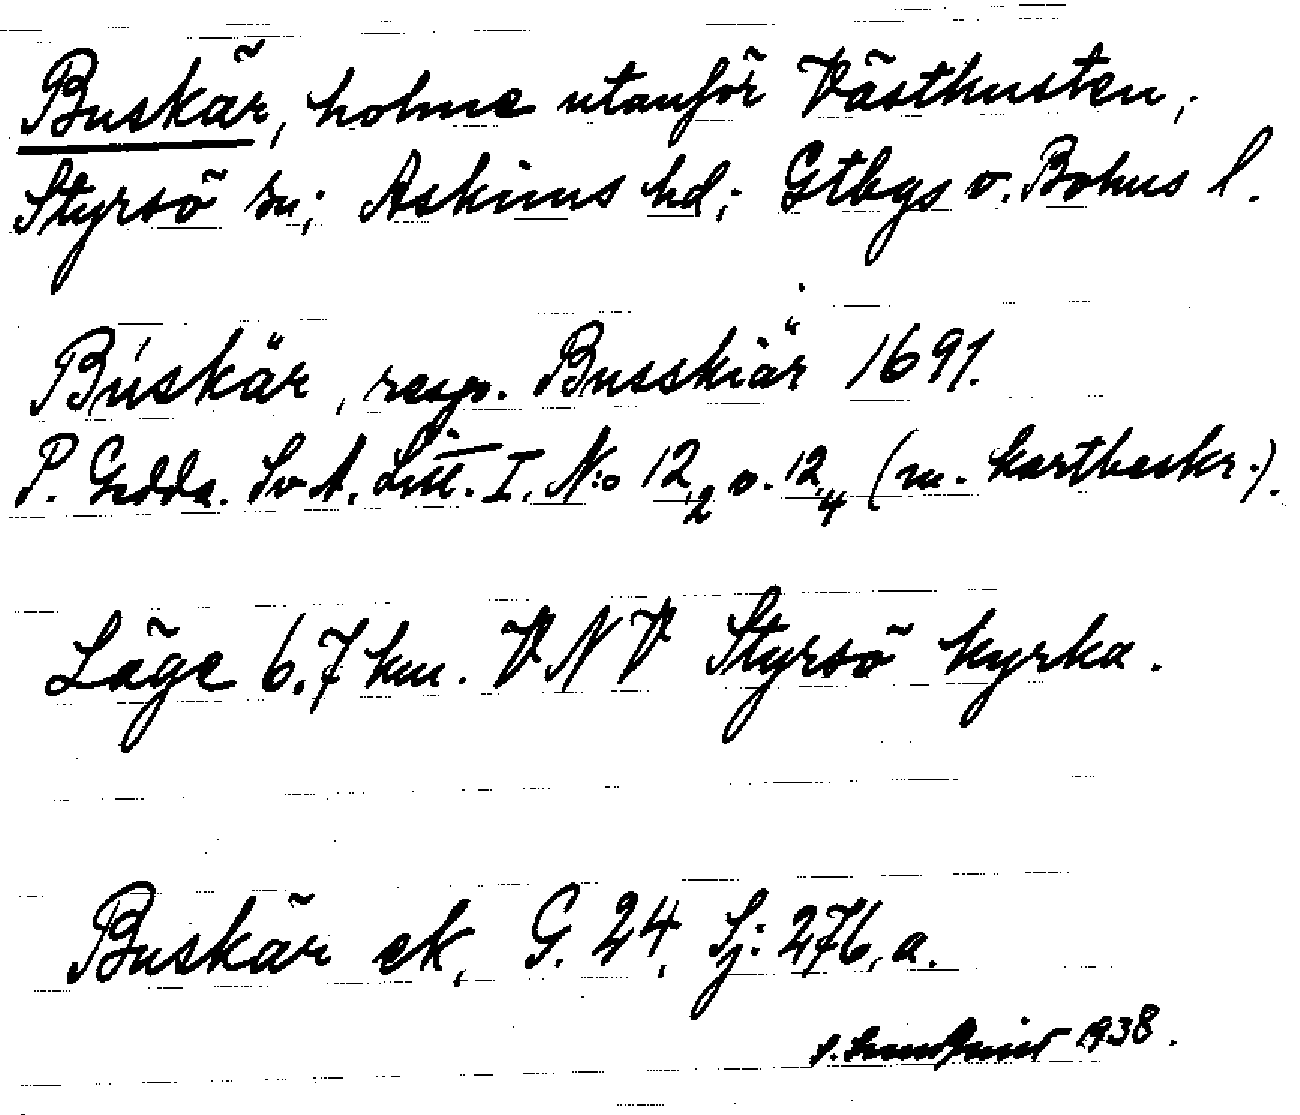 Buskär, holme utanför Västkusten,
Styrsö sn; Askims hd; Gtbgs o. Bohus l.
Búskär, resp. Busskiär 1691.
P. Gedda. Sv A. Litt. I. N:o 12,2 o. 12,4 (m. kartbeskr.).
Läge 6.7 km. VNV Styrsö kyrka.
Buskär ek. G. 24, Sj: 276, a.
1938.